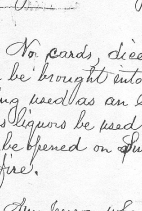 No cards, dice
be brought into
ing used as an
liquors be used
be opened on Sun
fire.